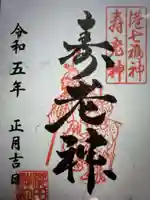 港七福神
寿老神
寿老神
令和五年
正月吉日